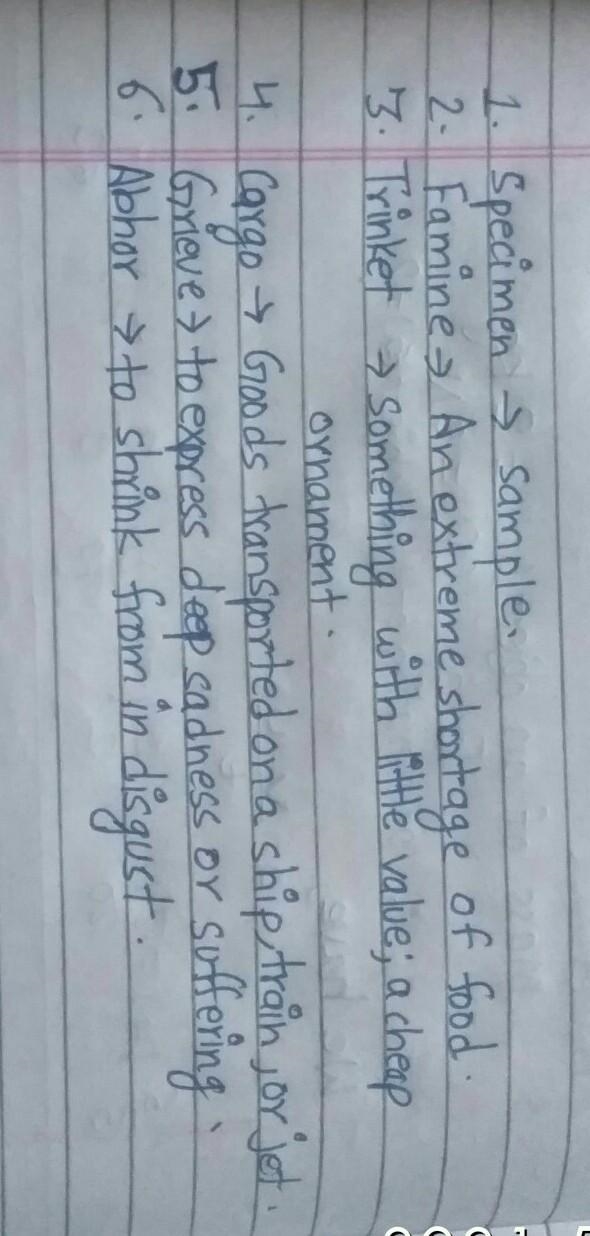 1. Specimen → sample.
2. Famine → An extreme shortage of food.
3. Trinket → Something with little value; a cheap
ornament.
4. Cargo → Goods transported on a ship, train, or jet.
5. Grieve → to express deep sadness or suffering.
6. Abhor → to shrink from in disgust.